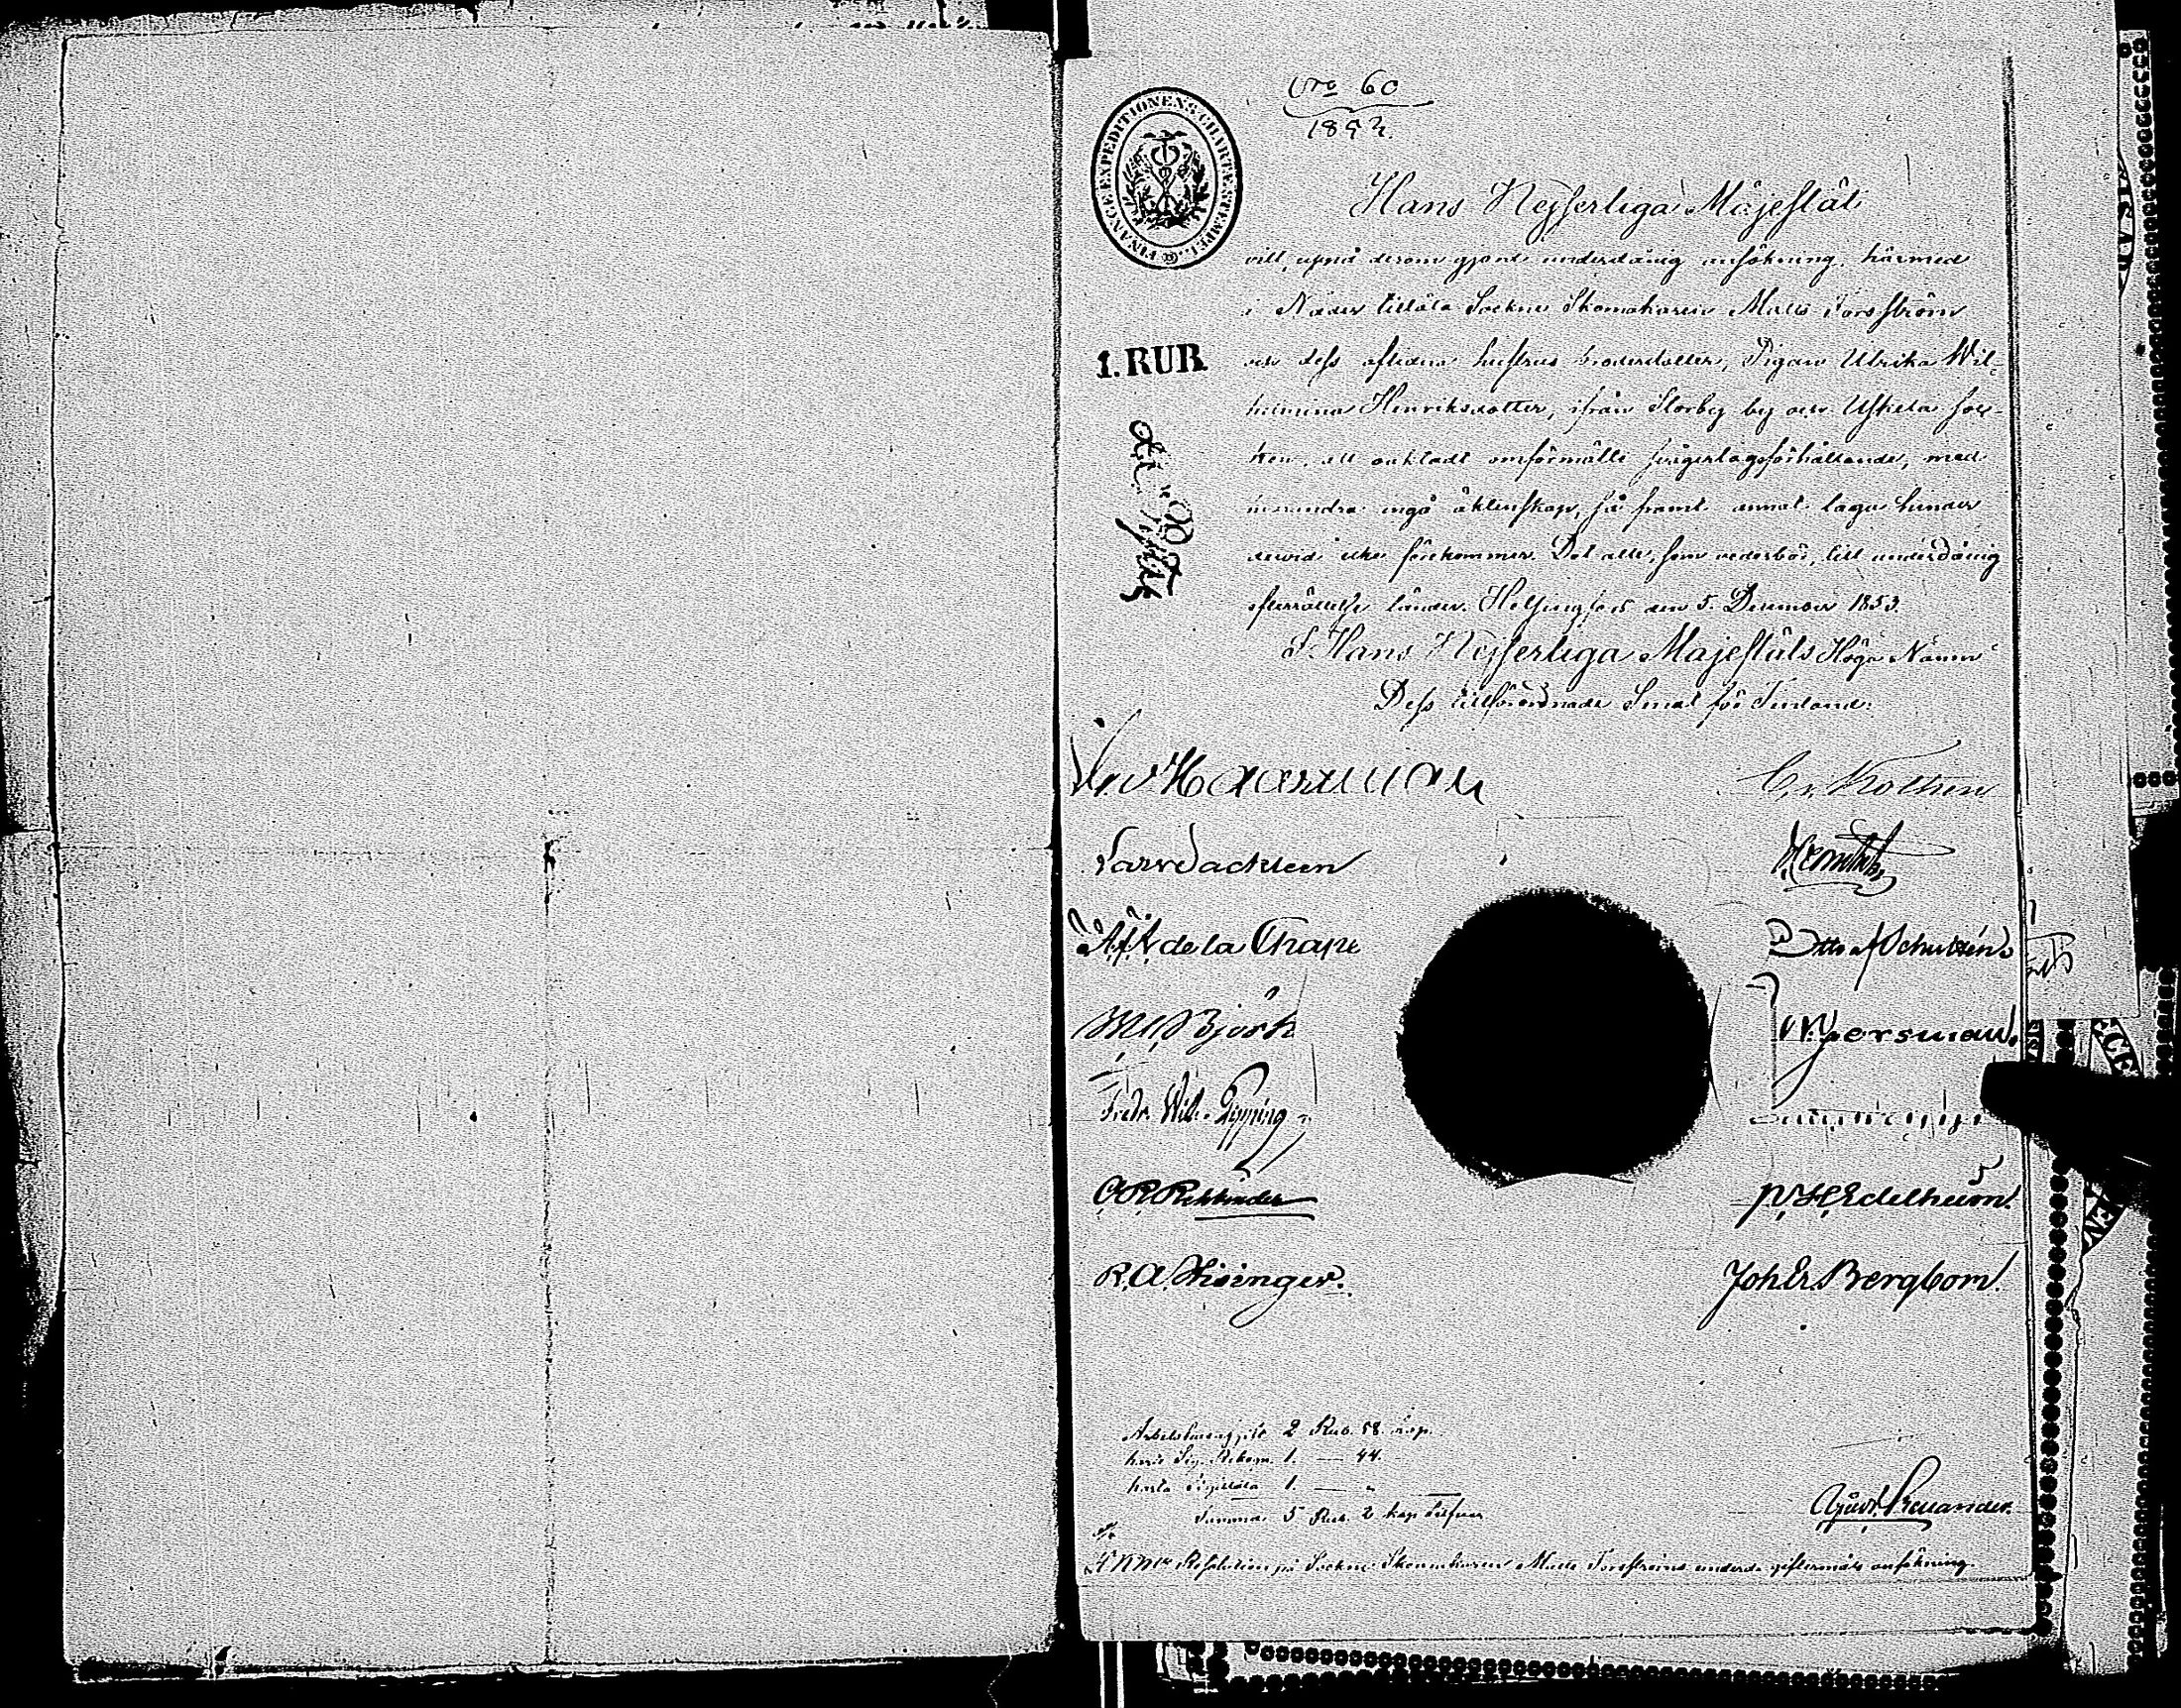 No 60
1853.
FINANCE EXPEDITIONENS CHARTÆ STEMPEL
Hans Kejserliga Majestät
vill, uppå derom gjord underdånig ansökning, härmed
i Nåder tillåta Sockne Skomakaren Matts Forsström
och dess aflidna hustrus brorsdotter, Pigan Ulrika Wil-
helmina Henriksdotter, ifrån Storby by och Uskela soc-
ken, att oaktadt omförmälte svågerlagsförhållande, med
hvarandra ingå äktenskap, så framt annat laga hinder
dervid icke förekommer. Det alle, som vederbör, till underdånig
efterrättelse länder. Helsingfors den 5. December 1853.
1. RUB.
I Hans Kejserliga Majestäts Höga Namn
Dess tillförordnade Senat för Finland:
Haartman
C. v. Kothen
Lars Sackleen
A. F. de la Chape
Otto af Schultén
Björk
Gersman.
Fredr. Wilh. Pipping
C. R. Rehbinder
Edelheim.
R. A. Hisinger.
Joh. Er. Bergbom.
2 Rub. 58. kop.
1. — 44.
karta Sigillata 1. —
Summa 5 Rub. 2 kop Silfver
Renander.
Resolution på Sockne Skomakaren Matts Forsströms underd. giftermåls ansökning.